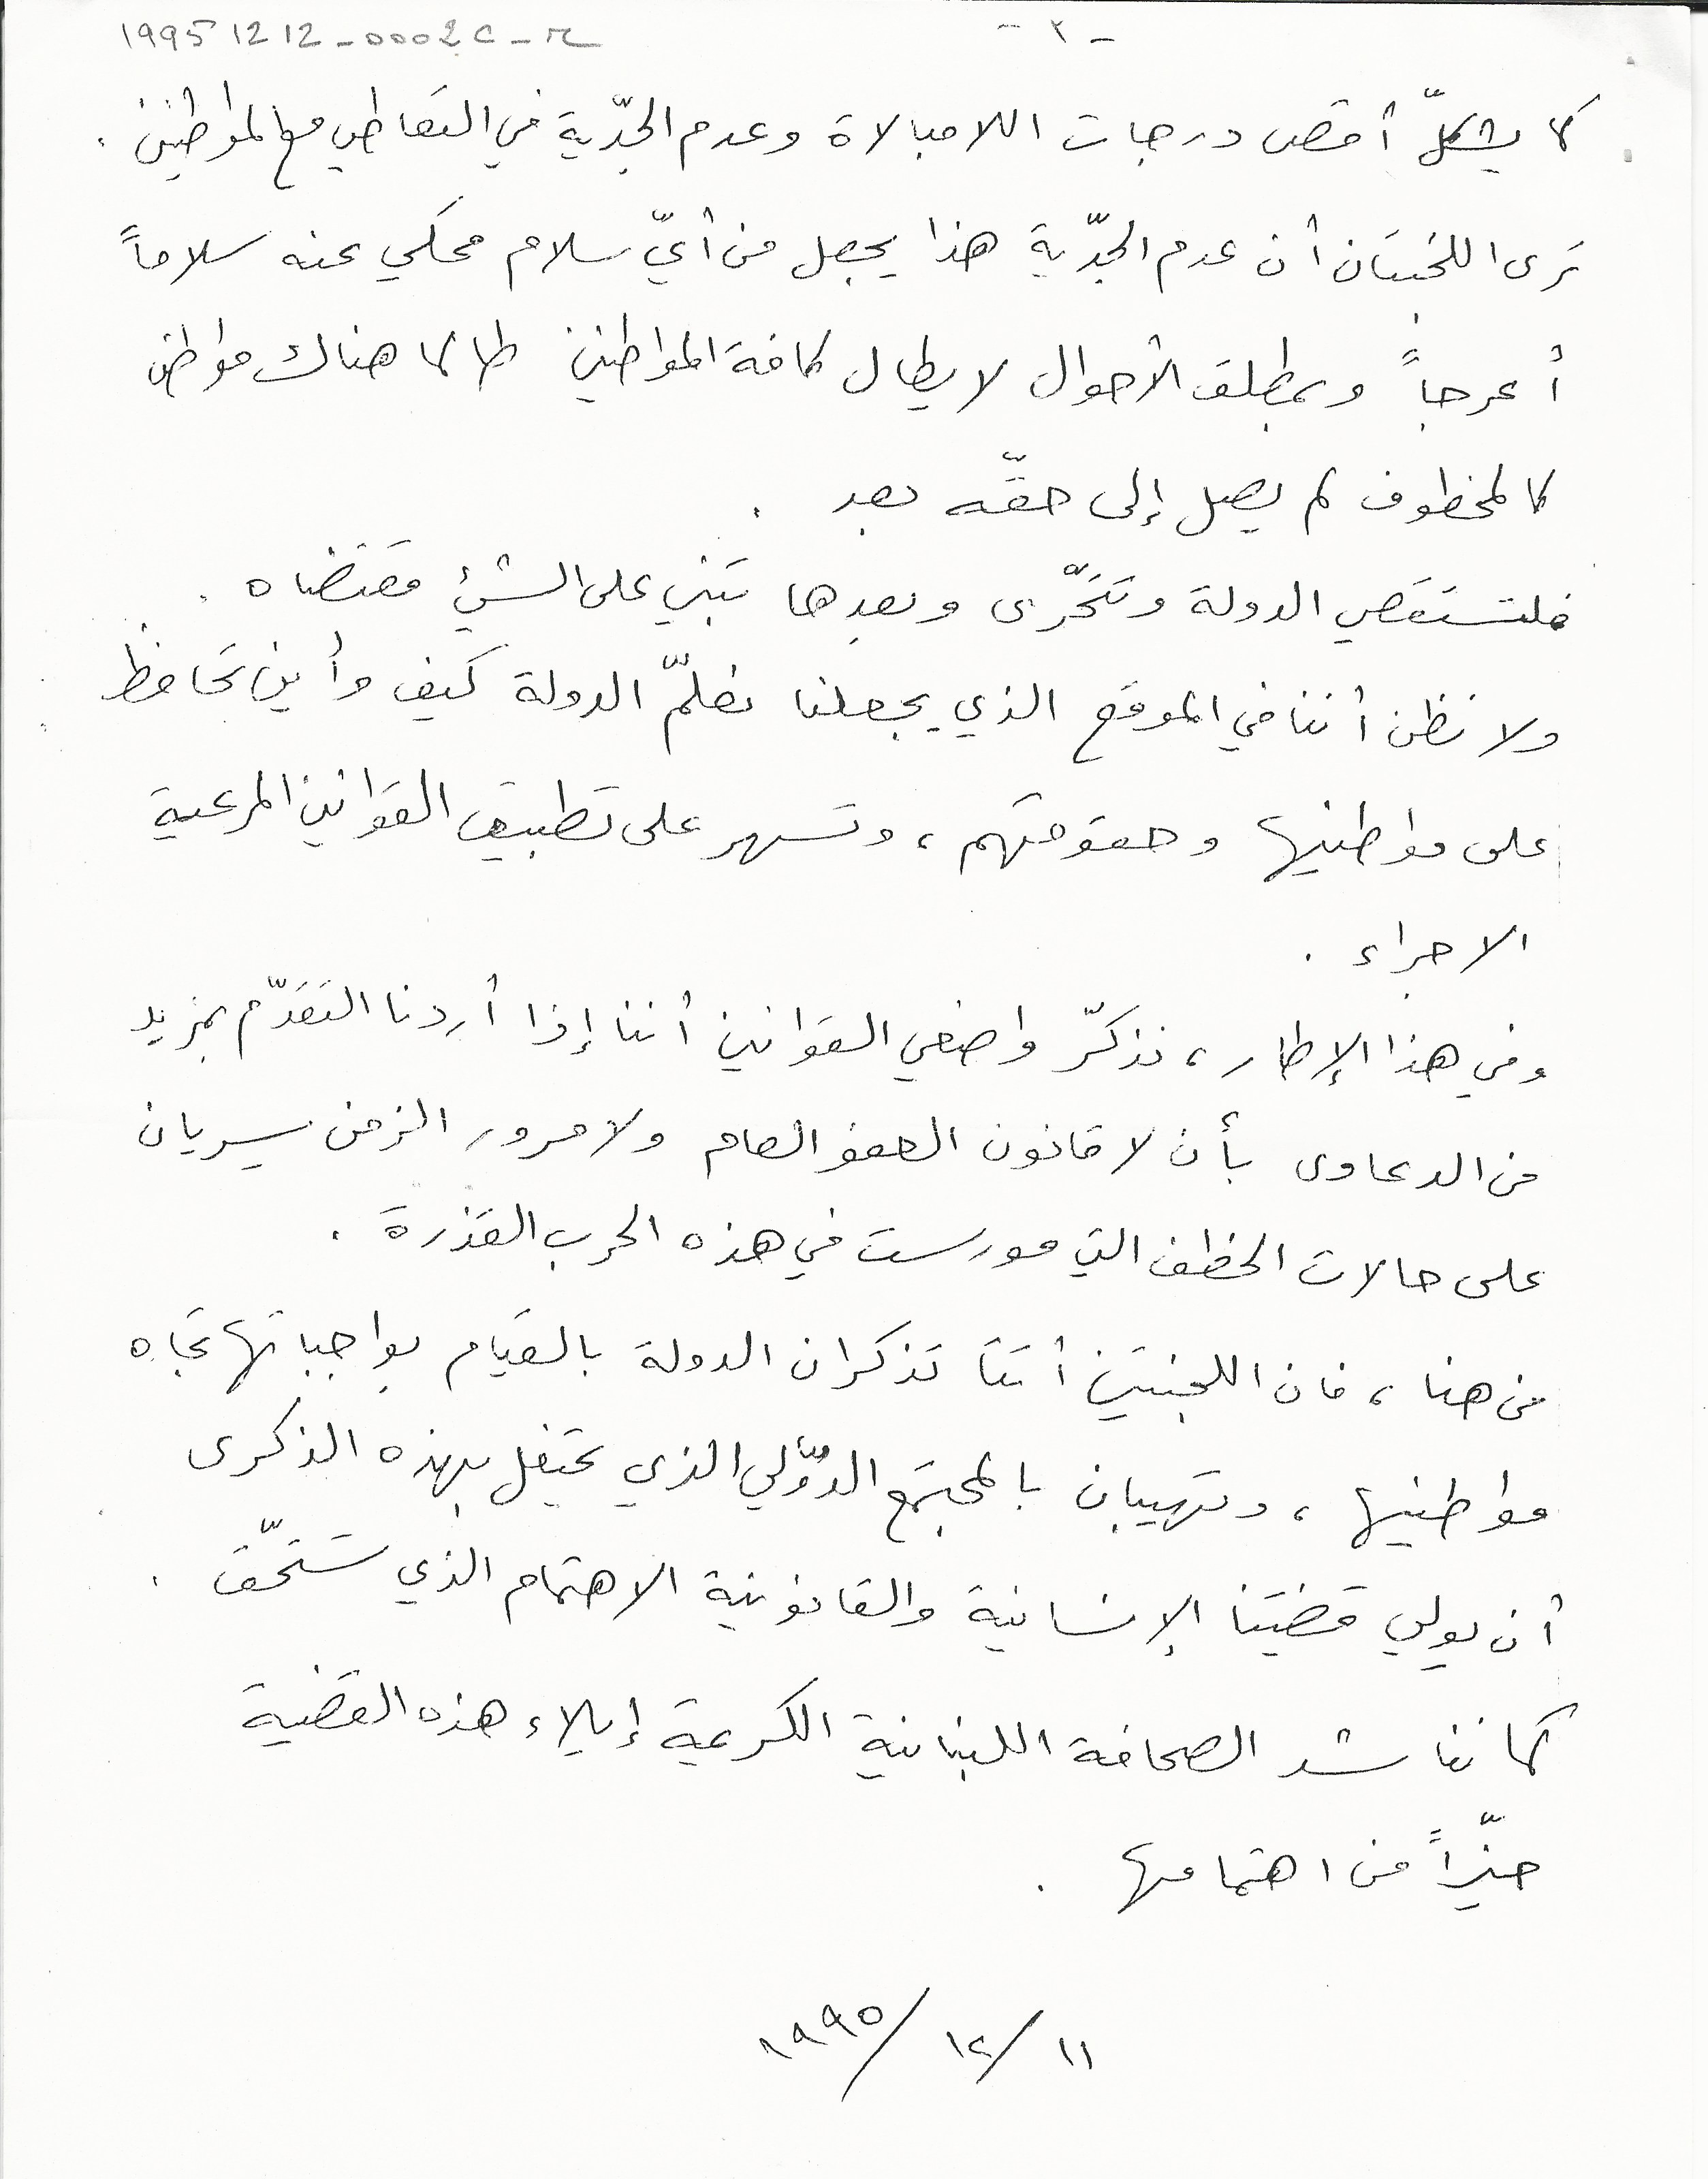 19951212-0002C-r
- ٢ -
كما يشكلّ أقصى درجات اللامبالاة وعدم الجدّية في التعاطي مع المواطنين .
ترى اللجنتان أن عدم الجدّية هذا يجعل من أيّ سلام محكي عنه سلاماً
أعرجاً وبمطلق الأحوال لا يطال كافة المواطنين طالما هناك مواطن
كالمخطوف لم يصل إلى حقّه بعد .
فلتستقصي الدولة وتتحرّى وبعدها تبني على الشيء مقتضاه .
ولا نظن أننا في الموقع الذي يجعلنا نعلّم الدولة كيف وأين تحافظ
على مواطنيها وحقوقهم ، وتسهر على تطبيق القوانين المرعية
الاجراء .
وفي هذا الإطار ، نذكّر واضعي القوانين أننا إذا أردنا التقدّم بمزيد
من الدعاوى بأن لا قانون العفو العام ولا مرور الزمن سيريان
على حالات الخطف التي مورست في هذه الحرب القذرة .
من هنا ، فان اللجنتين أتتا تذكران الدولة بالقيام بواجباتها تجاه
مواطنيها ، وتهيبان بالمجتمع الدوّلي الذي يحتفل بهذه الذكرى
أن يولي قضيتنا الإنسانية والقانونية الاهتمام الذي تستحّق .
كما نناشد الصحافة اللبنانية الكريمة إيلاء هذه القضية
حيّزاً من اهتمامها .
١١/ ١٢/ ١٩٩٥